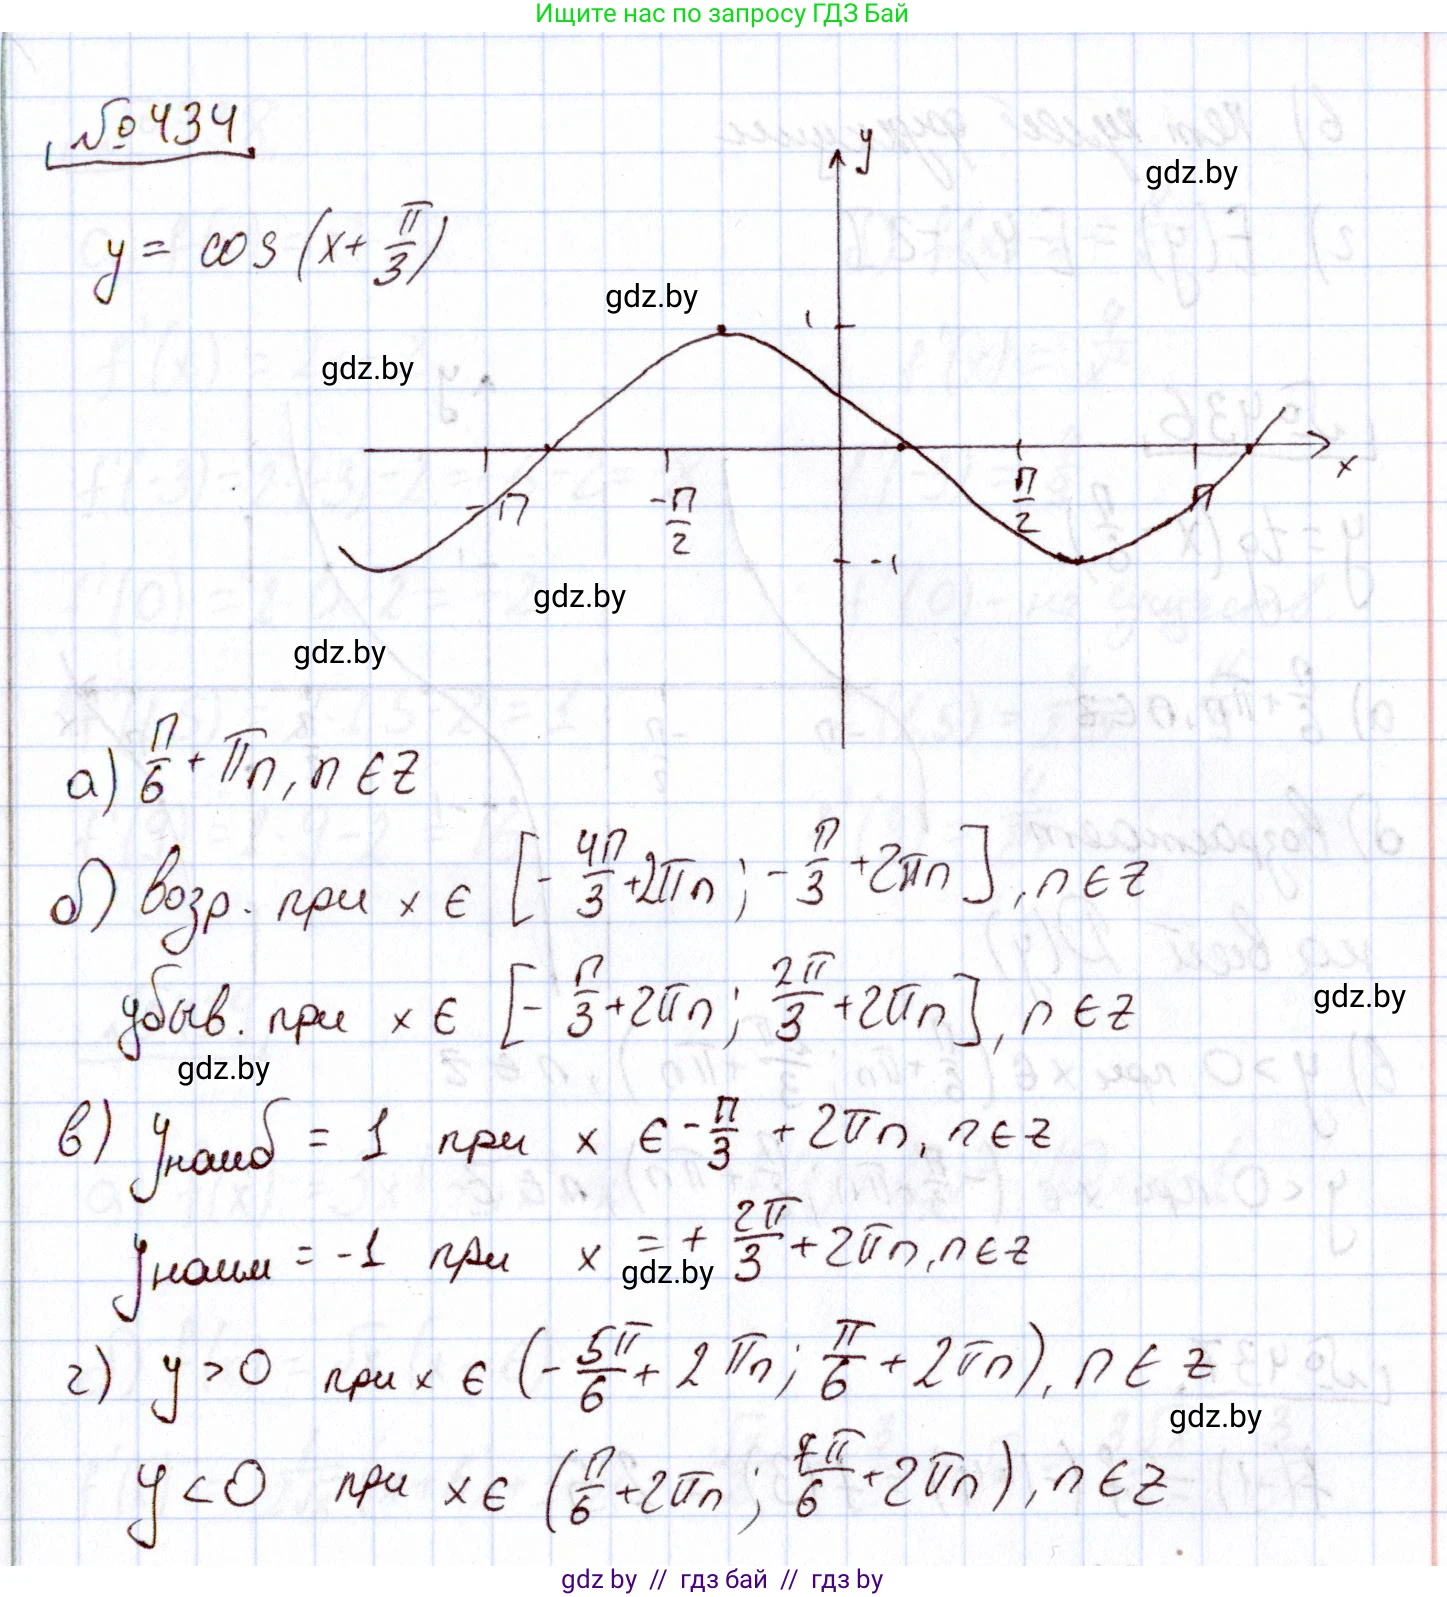 Ищите нас по запросу ГДЗ Бай
№434
y = cos (x + π/3)
y
gdz.by
gdz.by
1
gdz.by
x
-π
-π/2
π/2
π
-1
gdz.by
gdz.by
а) π/6 + πn, n ∈ Z
б) возр. при x ∈ [-4π/3 + 2πn; -π/3 + 2πn], n ∈ Z
убыв. при x ∈ [-π/3 + 2πn; 2π/3 + 2πn], n ∈ Z
gdz.by
gdz.by
в) yнаиб = 1 при x ∈ -π/3 + 2πn, n ∈ Z
yнаим = -1 при x = + 2π/3 + 2πn, n ∈ Z
gdz.by
г) y > 0 при x ∈ (-5π/6 + 2πn; π/6 + 2πn), n ∈ Z
gdz.by
y < 0 при x ∈ (π/6 + 2πn; 7π/6 + 2πn), n ∈ Z
gdz by // гдз бай // гдз by